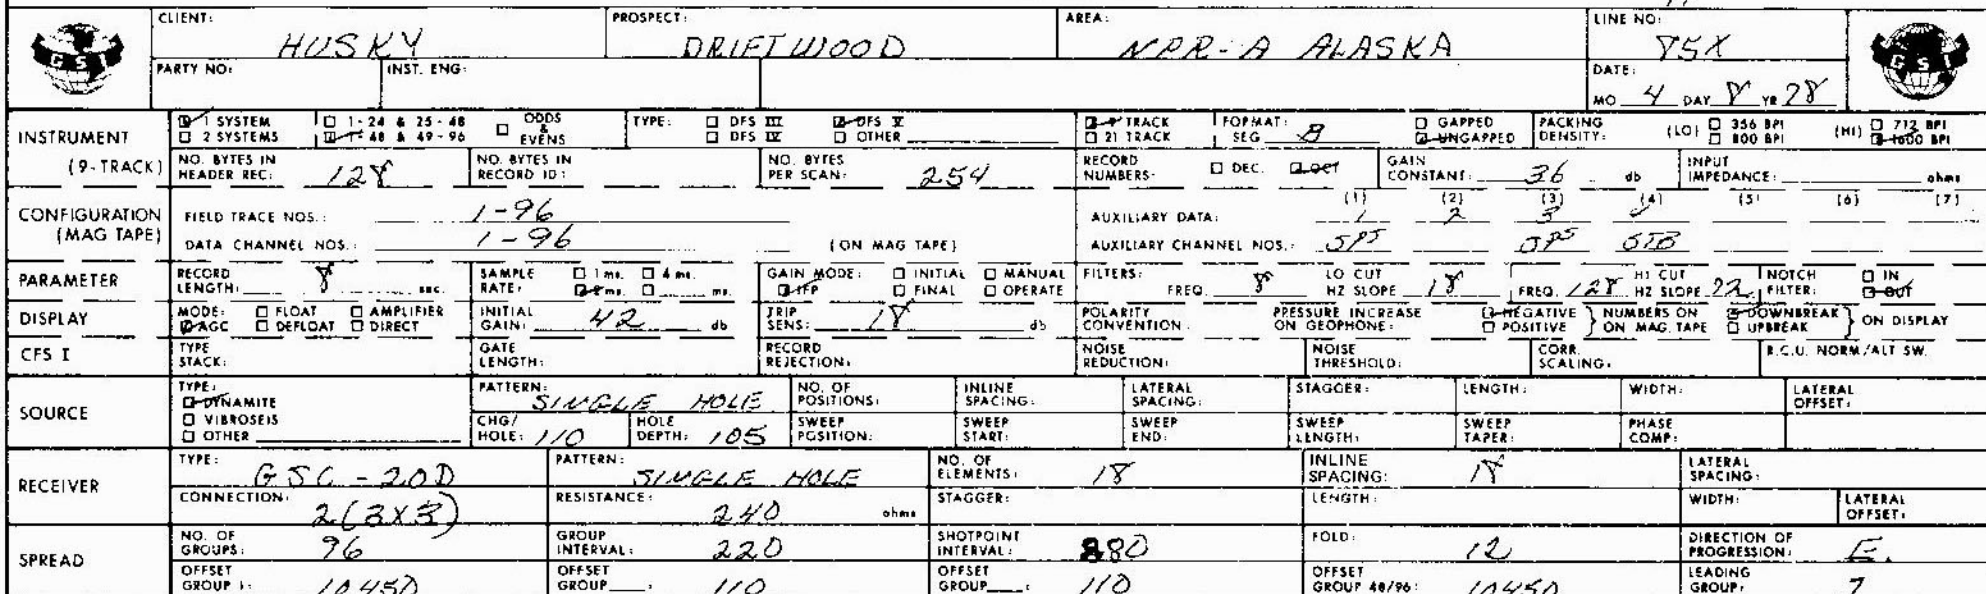 CLIENT: HUSKY PROSPECT: DRIFTWOOD AREA: NPR-A ALASKA LINE NO: 85X
GSI GSI
PARTY NO: INST. ENG: DATE: MO 4 DAY 8 YR 78
INSTRUMENT 1 SYSTEM 1-24 & 25-48 ODDS & EVENS TYPE: DFS III DFS V 9 TRACK FORMAT: GAPPED PACKING (LO) 356 BPI (HI) 712 BPI
2 SYSTEMS 1-48 & 49-96 DFS IV OTHER 21 TRACK SEG B UNGAPPED DENSITY: 800 BPI 1600 BPI
(9-TRACK) NO. BYTES IN HEADER REC: 128 NO. BYTES IN RECORD ID: NO. BYTES PER SCAN: 254 RECORD NUMBERS: DEC. OCT GAIN CONSTANT: 36 db INPUT IMPEDANCE: ohms
(1) (2) (3) (4) (5) (6) (7)
CONFIGURATION FIELD TRACE NOS.: 1-96 AUXILIARY DATA: 1 2 3
(MAG TAPE) DATA CHANNEL NOS.: 1-96 (ON MAG TAPE) AUXILIARY CHANNEL NOS.: STB
PARAMETER RECORD LENGTH: 8 sec. SAMPLE RATE: 1 ms. 4 ms. 2 ms. ms. GAIN MODE: INITIAL MANUAL IFP FINAL OPERATE FILTERS: FREQ. 8 LO CUT HZ SLOPE 18 FREQ. 128 HI CUT HZ SLOPE 72 NOTCH FILTER: IN OUT
DISPLAY MODE: FLOAT AMPLIFIER AGC DEFLOAT DIRECT INITIAL GAIN: 42 db TRIP SENS: 18 db POLARITY CONVENTION: PRESSURE INCREASE ON GEOPHONE: NEGATIVE POSITIVE NUMBERS ON ON MAG. TAPE DOWNBREAK UPBREAK ON DISPLAY
CFS I TYPE STACK: GATE LENGTH: RECORD REJECTION: NOISE REDUCTION: NOISE THRESHOLD: CORR. SCALING: R.C.U. NORM/ALT SW.
SOURCE TYPE: DYNAMITE PATTERN: SINGLE HOLE NO. OF POSITIONS: INLINE SPACING: LATERAL SPACING: STAGGER: LENGTH: WIDTH: LATERAL OFFSET:
VIBROSEIS OTHER CHG/HOLE: 110 HOLE DEPTH: 105 SWEEP POSITION: SWEEP START: SWEEP END: SWEEP LENGTH: SWEEP TAPER: PHASE COMP:
RECEIVER TYPE: GSC-20D PATTERN: SINGLE HOLE NO. OF ELEMENTS: 18 INLINE SPACING: 18 LATERAL SPACING:
CONNECTION: 2(3X3) RESISTANCE: 240 ohms STAGGER: LENGTH: WIDTH: LATERAL OFFSET:
SPREAD NO. OF GROUPS: 96 GROUP INTERVAL: 220 SHOTPOINT INTERVAL: 880 FOLD: 12 DIRECTION OF PROGRESSION: E.
OFFSET GROUP 1: 10450 OFFSET GROUP : 110 OFFSET GROUP : 110 OFFSET GROUP 48/96: 10450 LEADING GROUP: